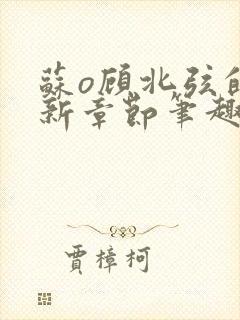 蘇o顧北弦的
新章節筆趣
賈樟柯